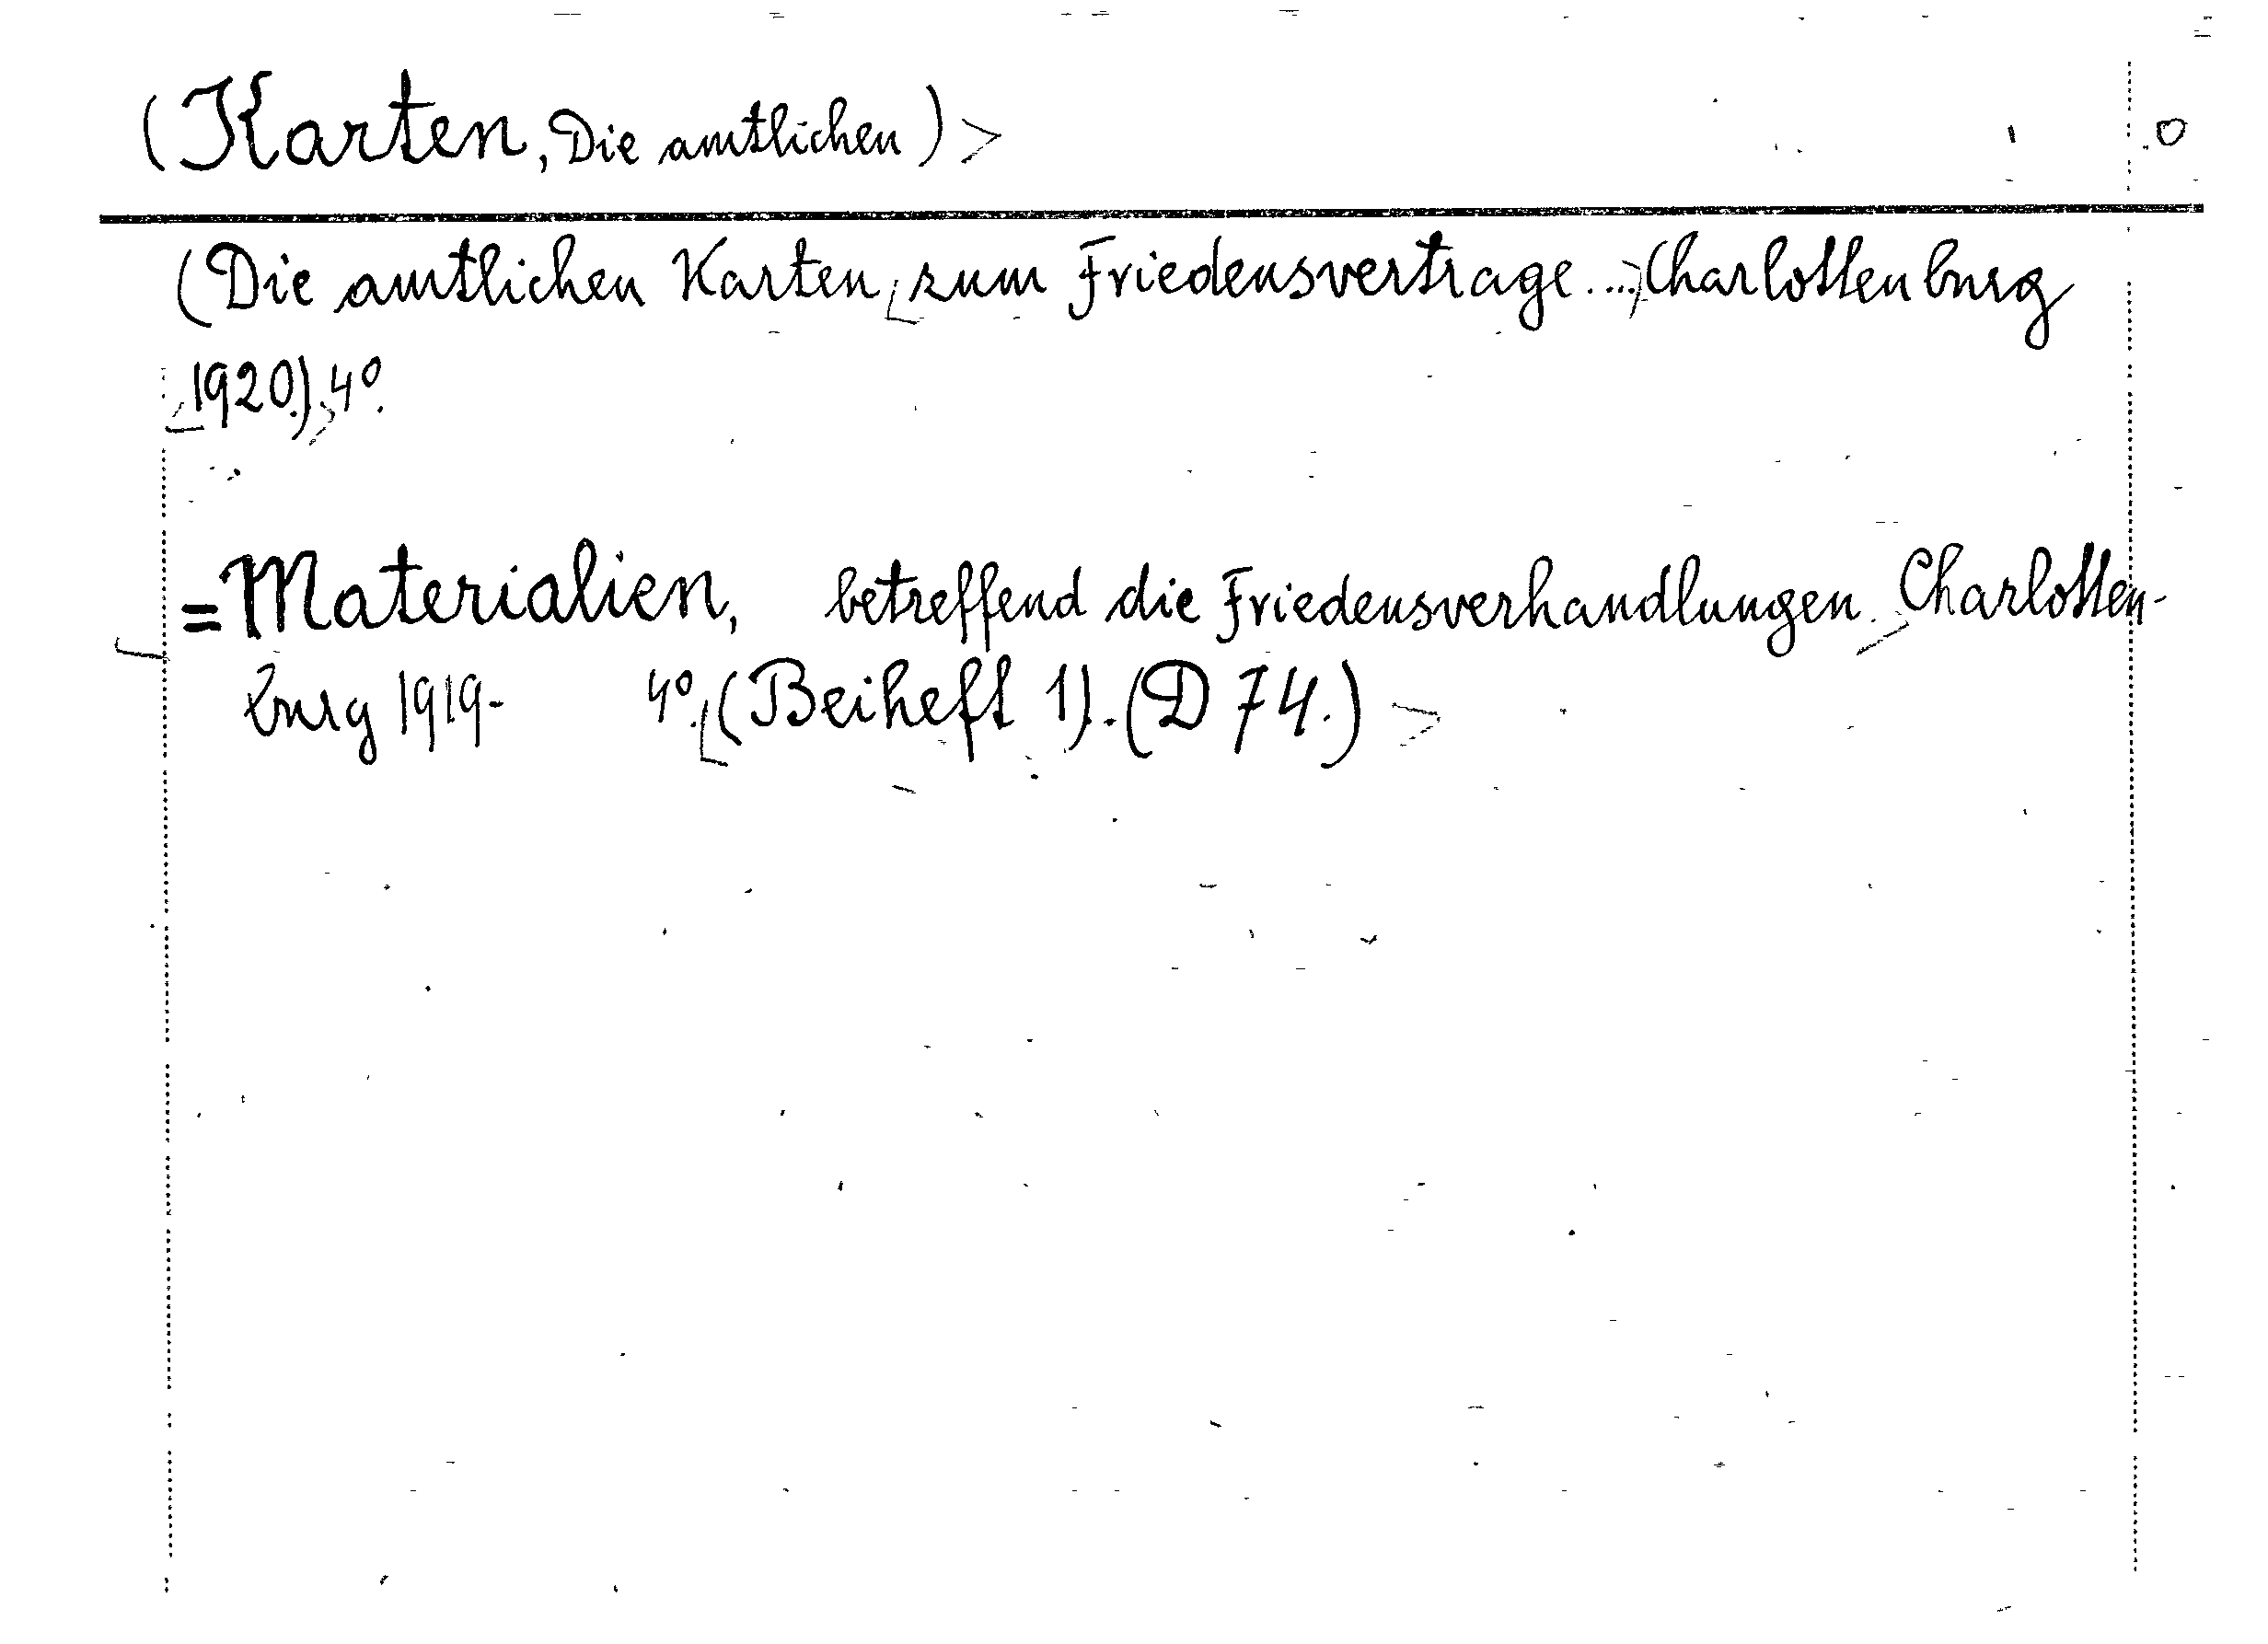 (Karten, Die amtlichen)
(Die amtlichen Karten zum Friedensvertrage...) Charlottenburg
1920.). 4º.
=Materialien, betreffend die Friedensverhandlungen. Charlotten-
burg 1919- 4º. (Beiheft 1). (D 74.)